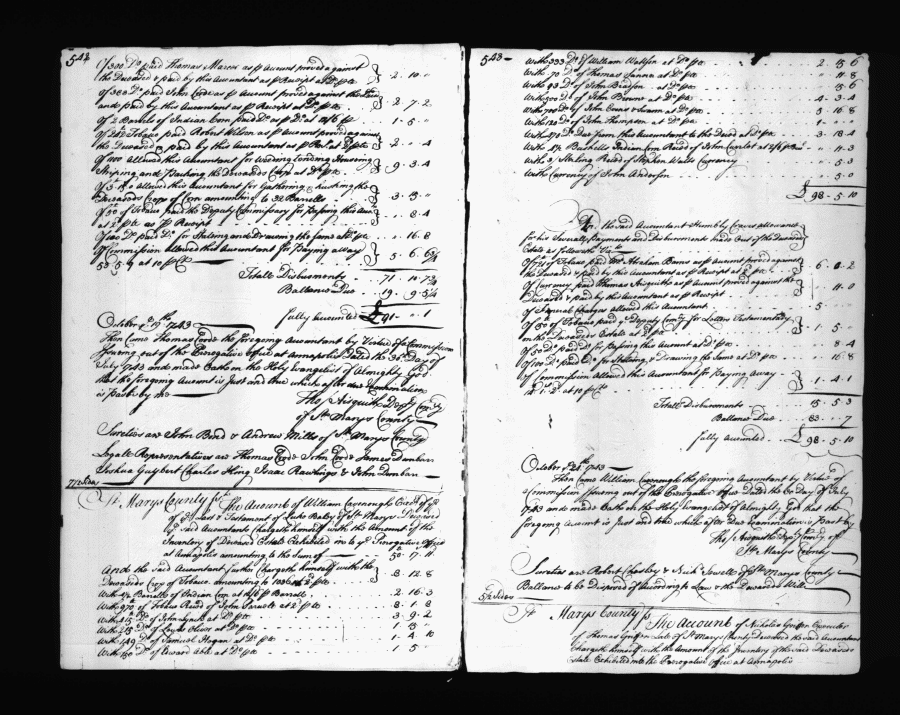 542
Of 300 Do. paid Thomas as pr Account proved against
the Deceased & paid by this Accountant as pr Receipt at Do. pr Ct. 2 . 10 . "
Of 300 Do. paid John Cord as pr Account proved against the Deced
and paid by this Accountant as pr Receipt at Do. pr Ct. 2 . 7 . 2
Of 2 Barrels of Indian Corn paid Do. as pr Do. at 12/6 pr 1 . 5 . "
Of 242 Tobacco paid Robert Wilson as pr Account proved against
the Deceased & paid by this Accountant as pr Rect. at Do. pr Ct. 2 . " . 4
Of allowed this Accountant for Weeding Tending Housing
Striping and Packing the Deceaseds Crop at Do. pr Ct. 9 . 3 . 4
Of allowed this Accountant for Gathering & husking the
Deceaseds Crop of Corn amounting to 32 Barrells 3 . 15 . "
Of 50 of Tobacco paid the Deputy Commissary for Passing this Acct.
at Do. pr Ct. as pr Receipt " . 8 . 4
Of 100 Do. paid Do. for Stating and Drawing the same at Do. pr Ct. " . 16 . 8
Of Commission allowed this Accountant for Paying away
at 10 pr Ct. 5 . 6 . 6¾
Totall Disbursments 71 . 10 . 7¾
Ballance Due 19 . 9 . 5¼
fully accounted £ 91 . " . 1
October ye 19th 1743
Then came Thomas Cord the foregoing Accountant by Virtue of a Commission
Issuing out of the Prerogative Office at Annapolis Dated the Day of
July 1743 and made Oath on the Holy Evangelist of Almighty God
that the foregoing Account is Just and true which after due Examination
is past by me
Tho. Aisquith Dep. Comry
of St. Marys County
Sureties are John Bond & Andrew Mills of St. Marys County
Legall Representatives are Thomas Cord John Cord James Dunbar
Joshua Guybert Charles King Isaac Rawlings & John Dunbar
7½ Sides
St. Marys County Ss. The Account of William Cavenough Execr. of ye
of ye Last & Testament of Luke Baly of St. Marys Deceased
ye said Accountants Chargeth himself with the Amount of the
Inventory of Deceased Estate Exhibited into ye Prerogative Office
at Annapolis amounting to the Sum of 50 . 17 . 11
And the said Accountant further Chargeth himself with the
Deceaseds Crop of Tobacco amounting to 1036 pr Ct. 8 . 12 . 8
With 4½ Barrells of Indian Corn at pr Barrell 2 . 16 . 3
With 970 of Tobacco Reced of John at 2d pr Ct. 8 . 1 . 8
With 415 Do. of John Lynch at Do. pr Ct. 3 . 9 . 2
With Do. of Oliver at Do. pr Ct.
With 149 Do. of Samuel Hagan at Do. pr Ct. 1 . 4 . 10
With 150 Do. of Edward Able at Do. pr Ct. 1 . 5 . "
543
With 333 Do. of William Watson at Do. pr Ct. 2 . 15 . 6
With 70 Do. of Thomas at Do. pr Ct. " . 11 . 8
With 93 Do. of John at Do. pr Ct. " . 15 . 6
With 500 Do. of John Browne at Do. pr Ct. 4 . 3 . 4
With 700 Do. of John at Do. pr Ct. 5 . 16 . 8
With 120 Do. of John Thompson at Do. pr Ct. 1 . " . "
With 470 Do. Due from this Accountant to the Deced at Do. pr Ct. 3 . 18 . 4
With 4½ Bushells Indian Corn Reced of John at 2/6 pr " . 11 . 3
With 3/ Starling Reced of Stephen Currency " . 5 . 3
With Currency of John Anderson " . 5 . 0
£ 98 . 5 . 10
And the said Accountant Humbly Craves allowance
for his Severall Payments and Disbursments made Out of the Deceaseds
Estate as followeth Vizt.
Of 721 of Tobacco paid Mr. Abraham Barns as pr Account proved against
the Deceased & paid by this Accountant as pr Receipt at 2d pr Ct. 6 . 0 . 2
Of Currency paid Thomas Aisquith as pr Account proved against the
Deceaseds & paid by this Accountant as pr Receipt " . 11 . 0
Of Funeral Charges allowed this Accountant 5 . " . "
Of 50 of Tobacco paid ye Deputy Comry for Letters Testamentary
on the Deceaseds Estate at 2d pr Ct. 1 . 5 . "
Of 50 Do. paid Do. for Passing this Account at Do. pr Ct. " . 8 . 4
Of 100 Do. paid Do. for Stating, & Drawing the Same at Do. pr Ct. " . 16 . 8
Of Commission allowed this Accountant for Paying away
at 10 pr Ct. 1 . 4 . 1
Totall Disbursments 15 . 5 . 3
Ballance Due 83 . " . 7
fully accounted £ 98 . 5 . 10
October ye 26. 1743
Then Came William Cavenough the foregoing Accountant by Virtue of
a Commission Issuing out of the Prerogative Office Dated the Day of July
1743 and made Oath on the Holy Evangelist of Almighty God that the
foregoing Account is Just and true which after Due Examination is Past by
Tho. Aisquith Dep. Comry of
St. Marys County
Sureties are Robert Chesley & Nich. Sewell of St. Marys County
Ballance to be Disposed of According to Law & the Deceaseds Will
5½ Sides
St. Marys County Ss. The Account of Nicholas Griffin Executor
of Thomas Griffin Late of St. Marys County Deceased the said Accountant
Chargeth himself with the Amount of the Inventory of the said Deceaseds
Estate Exhibited into the Prerogative Office at Annapolis